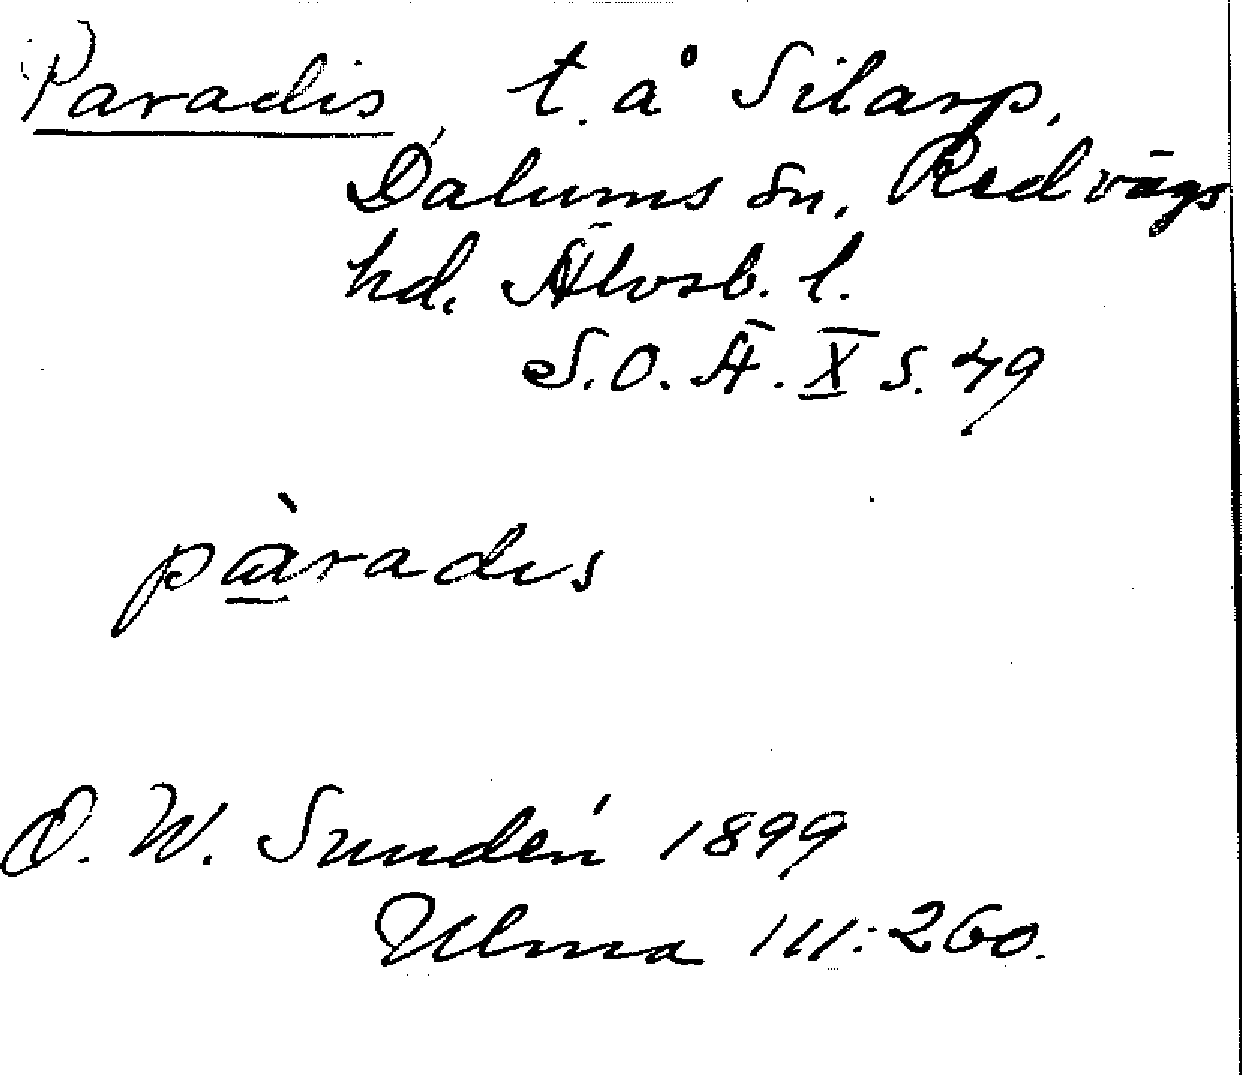 Paradis, t. å Silarp,
Dalums sn, Redvägs
hd, Älvsb. l.
S.O.Ä. X s. 49
pàradis
D. W. Sundén 1899
Ulma 111:260.